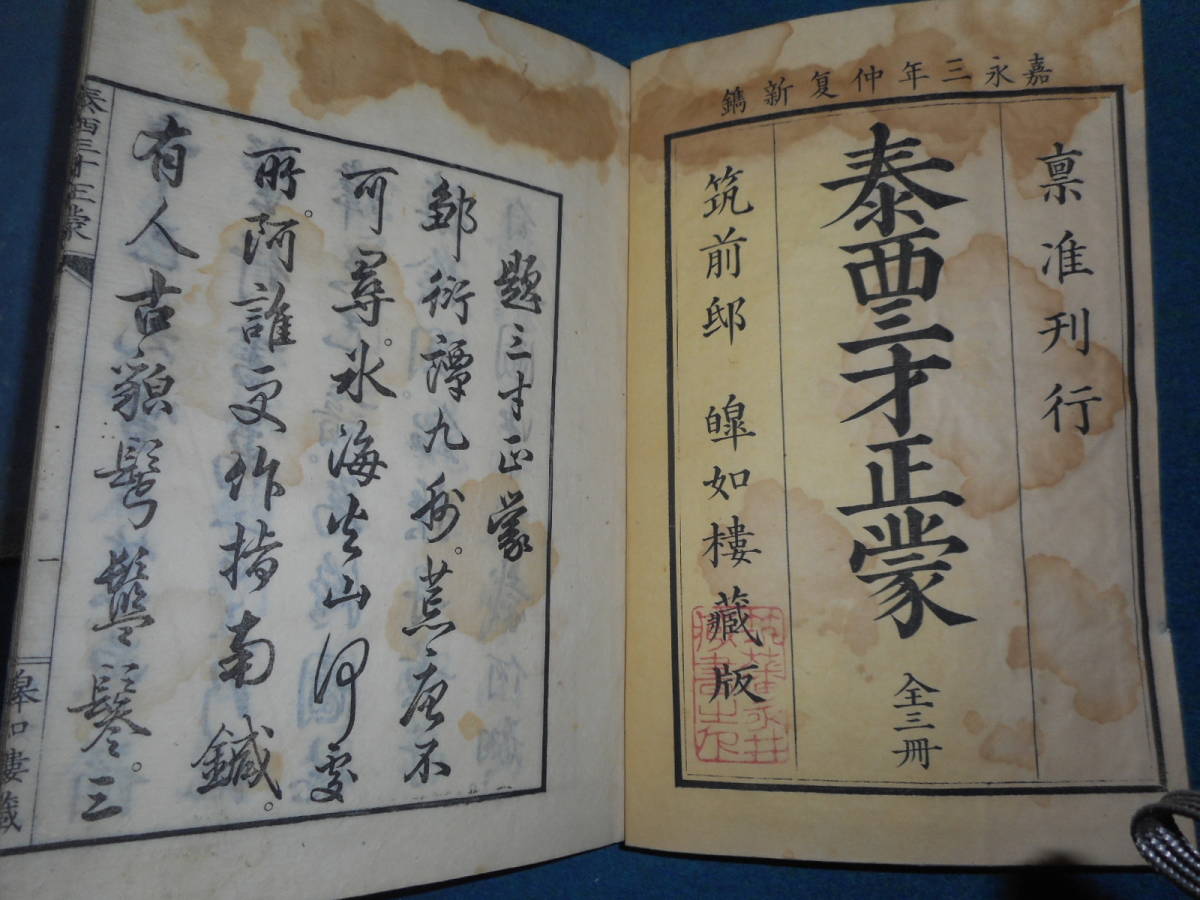 嘉永三年仲夏新鐫
稟准刊行
泰西三才正蒙
全三冊
筑前邸 皥如樓藏版
題三才正蒙
鄒衍譚九州。荒唐不
可尋。氷海火山何處
所。阿誰更作指南鍼。
有人古貌髯鬖。三
泰西三才正蒙
一
皥如樓藏